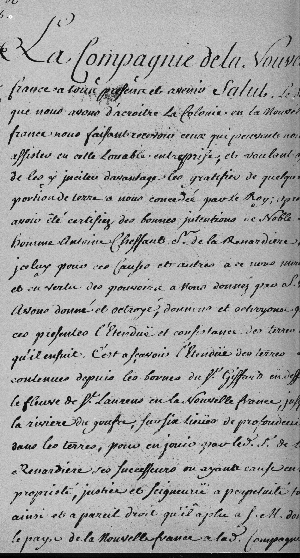 La Compagnie de la Nouve
france a tous presens et avenir Salut. Le de
que nous avons d'acroitre La Colonie en la Nouvel
france nous faisant recevoir ceux qui peuvent nou
assister en cette Louable entreprise, et voulant a
de les y inciter davantage les gratifier de quelque
portion de terre a nous concedée par le Roy; apre
avoir été certifiez des bonnes intentions de Noble
homme Antoine Cheffault Sr. de la Renardiere
jceluy pour ces Causes et autres a ce nous mou
et en vertu des pouvoirs a Nous donnez par S.
Avons donné et octroyé; donnons et octroyons p
ces presentes l'Etenduë et consistance des terres
qu'il ensuit. C'est a sçavoir l'Etenduë des terres
contenues depuis les bornes du Sr. Giffard en desc
le fleuve de St. Laurens en la Nouvelle france, jusq
la riviere du gouffre, sur six lieües de profondeur
dans les terres, pour en jouir par led. Sr. de
Renardiere ses Successeurs ou ayants cause en
proprieté, justice et Seigneurie a perpetuité to
ainsi et a pareil droit qu'il a plu a S. M. don
le pays de la Nouvelle france a lad. Compagn